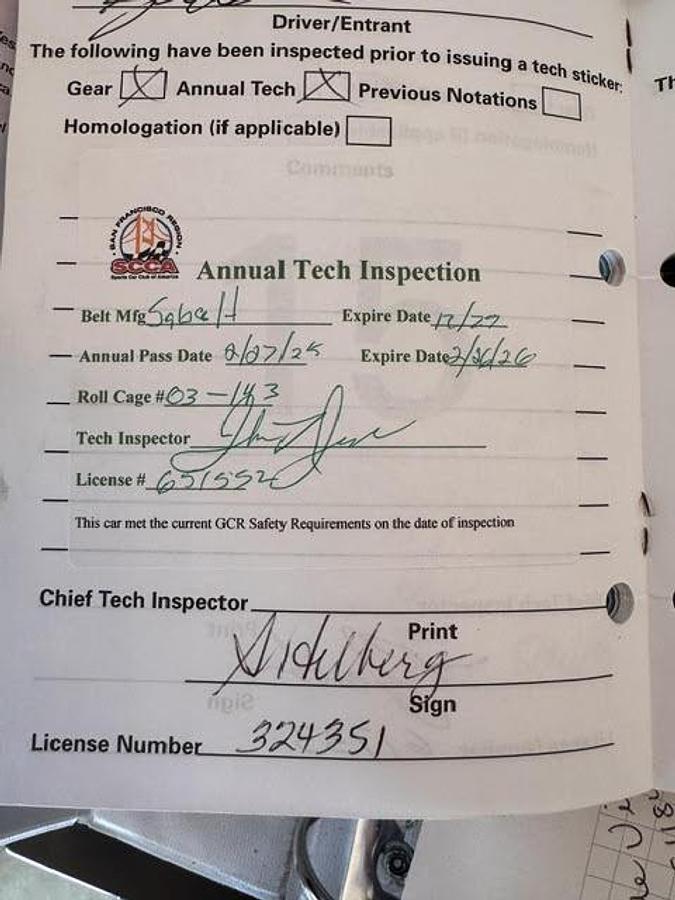 Driver/Entrant
The following have been inspected prior to issuing a tech sticker:
Gear Annual Tech Previous Notations
Homologation (if applicable)
Comments
SAN FRANCISCO REGION
SCCA
Sports Car Club of America
Annual Tech Inspection
Belt Mfg Sabelt Expire Date 12/27
Annual Pass Date 2/27/25 Expire Date 2/26/26
Roll Cage # 03-143
Tech Inspector
License # 651552
This car met the current GCR Safety Requirements on the date of inspection
Chief Tech Inspector
Print
Sign
License Number 324351